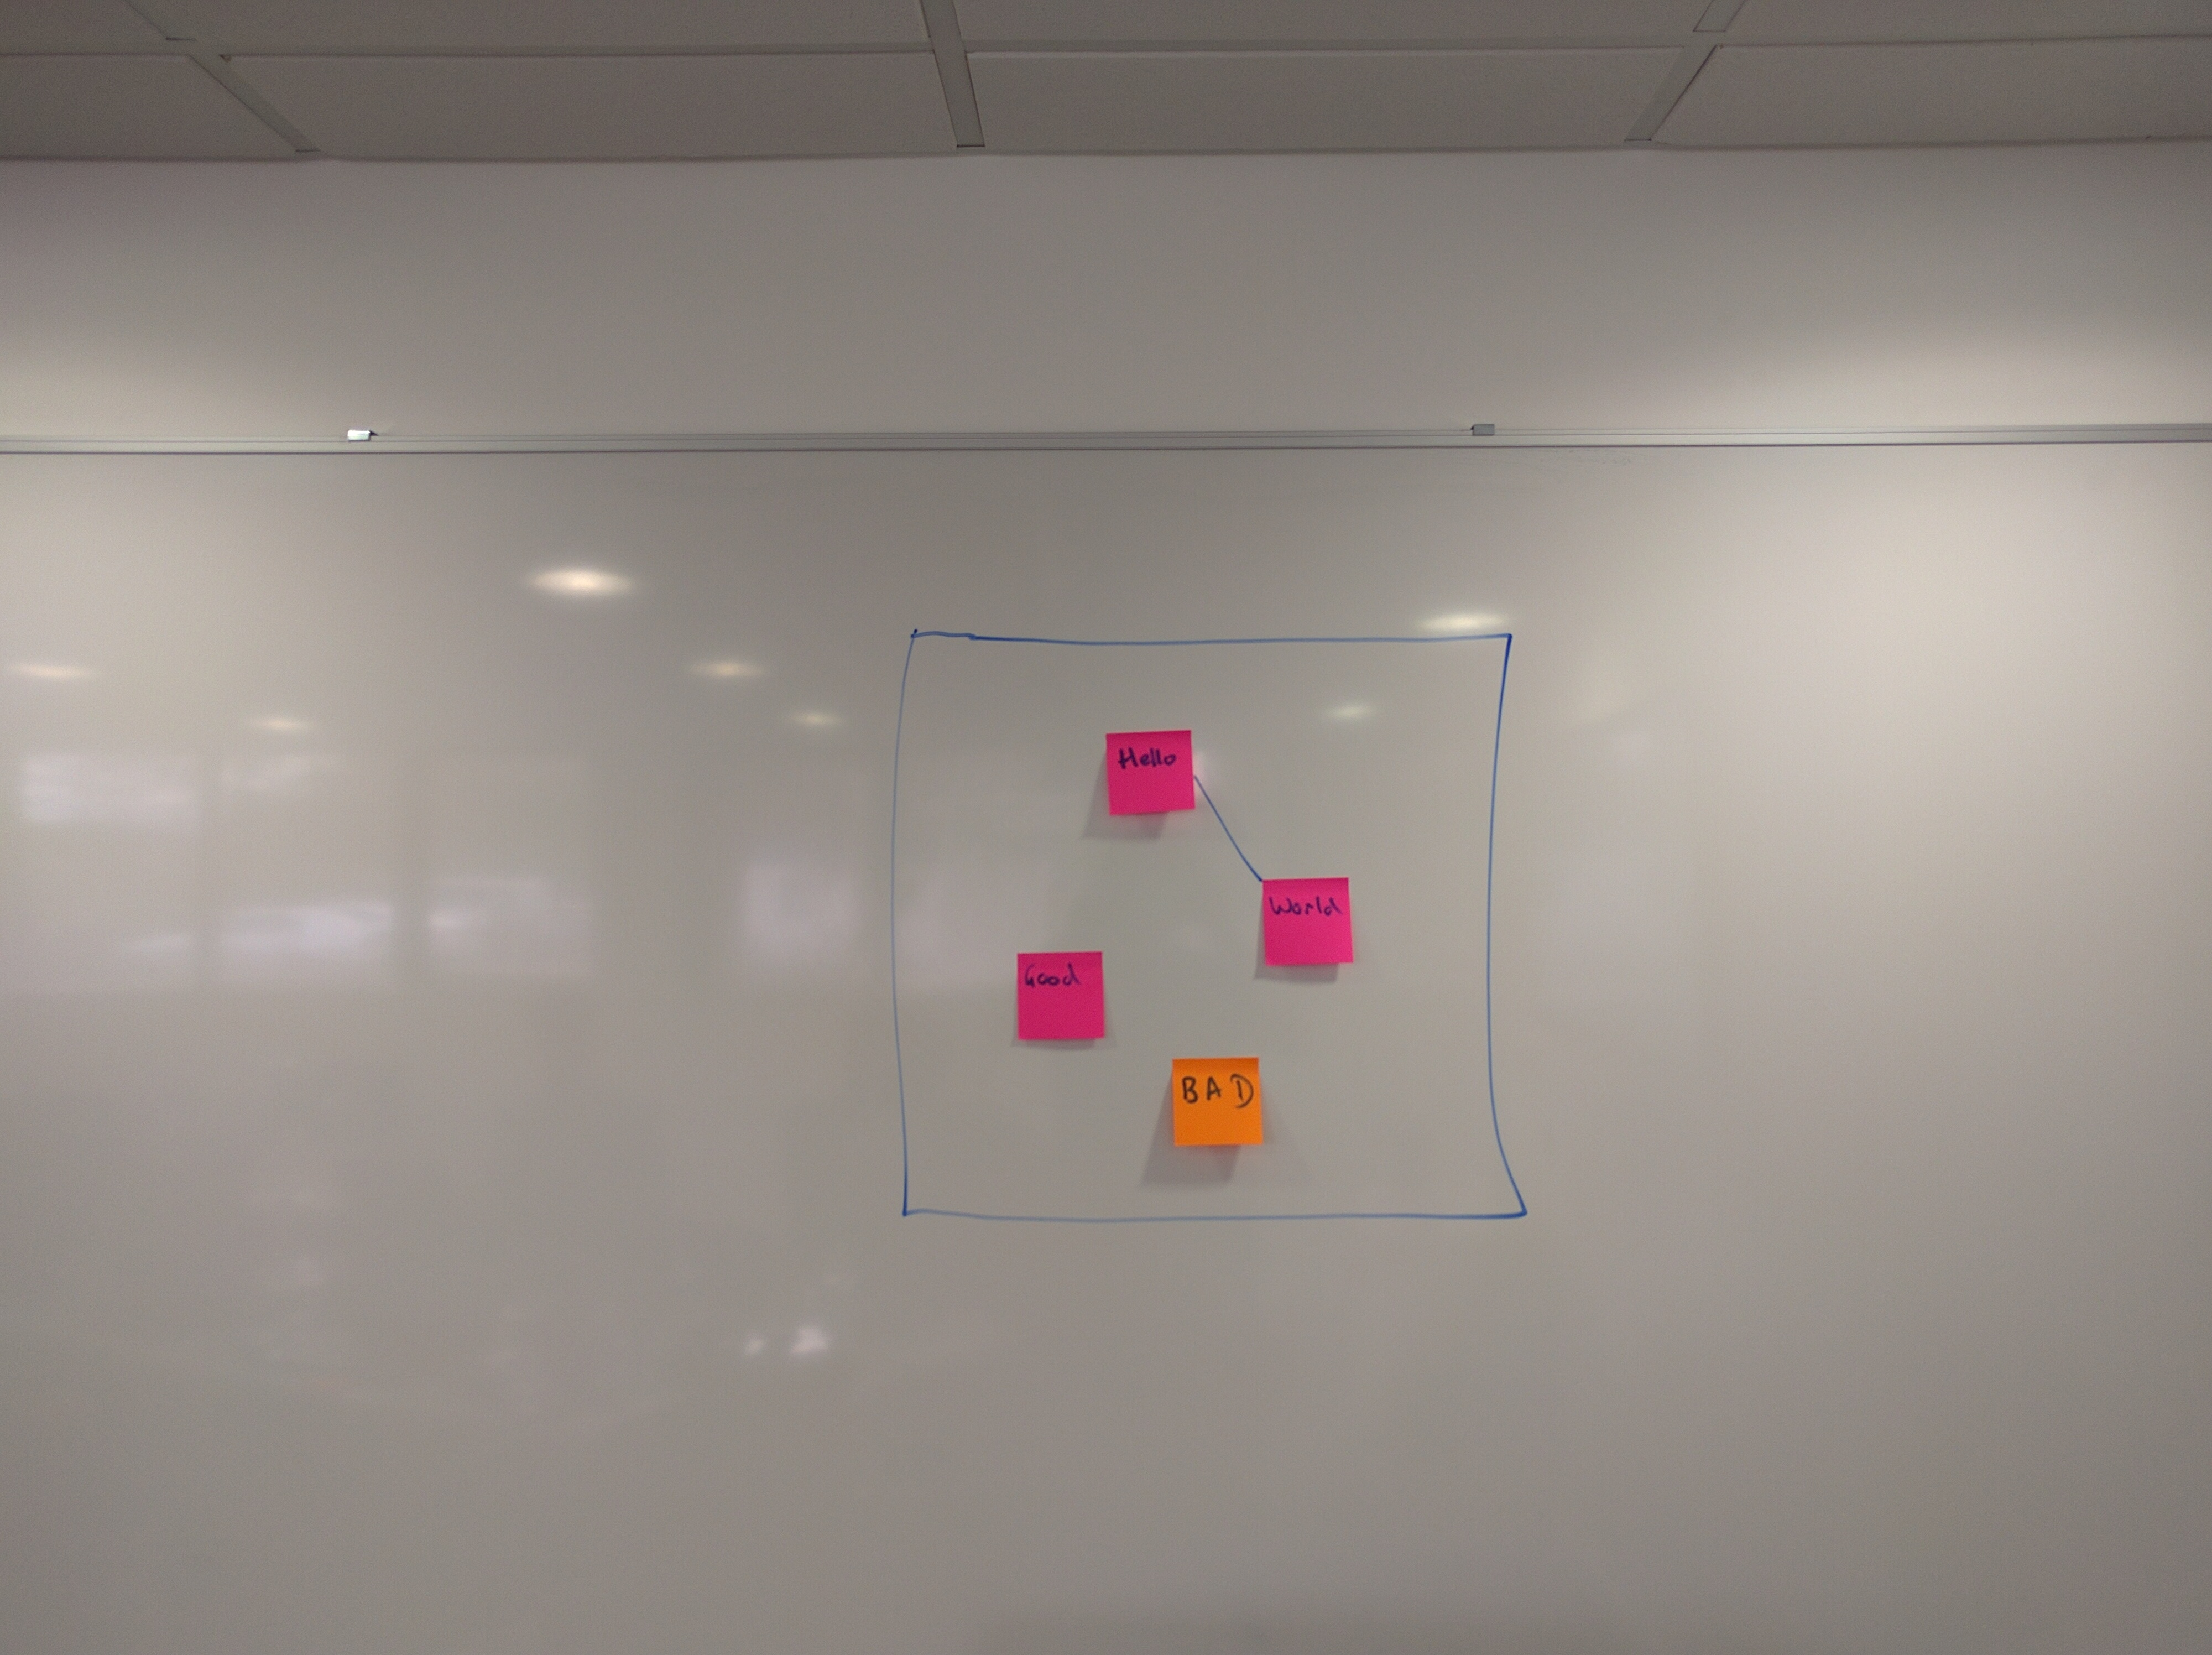 Hello
World
Good
BAD